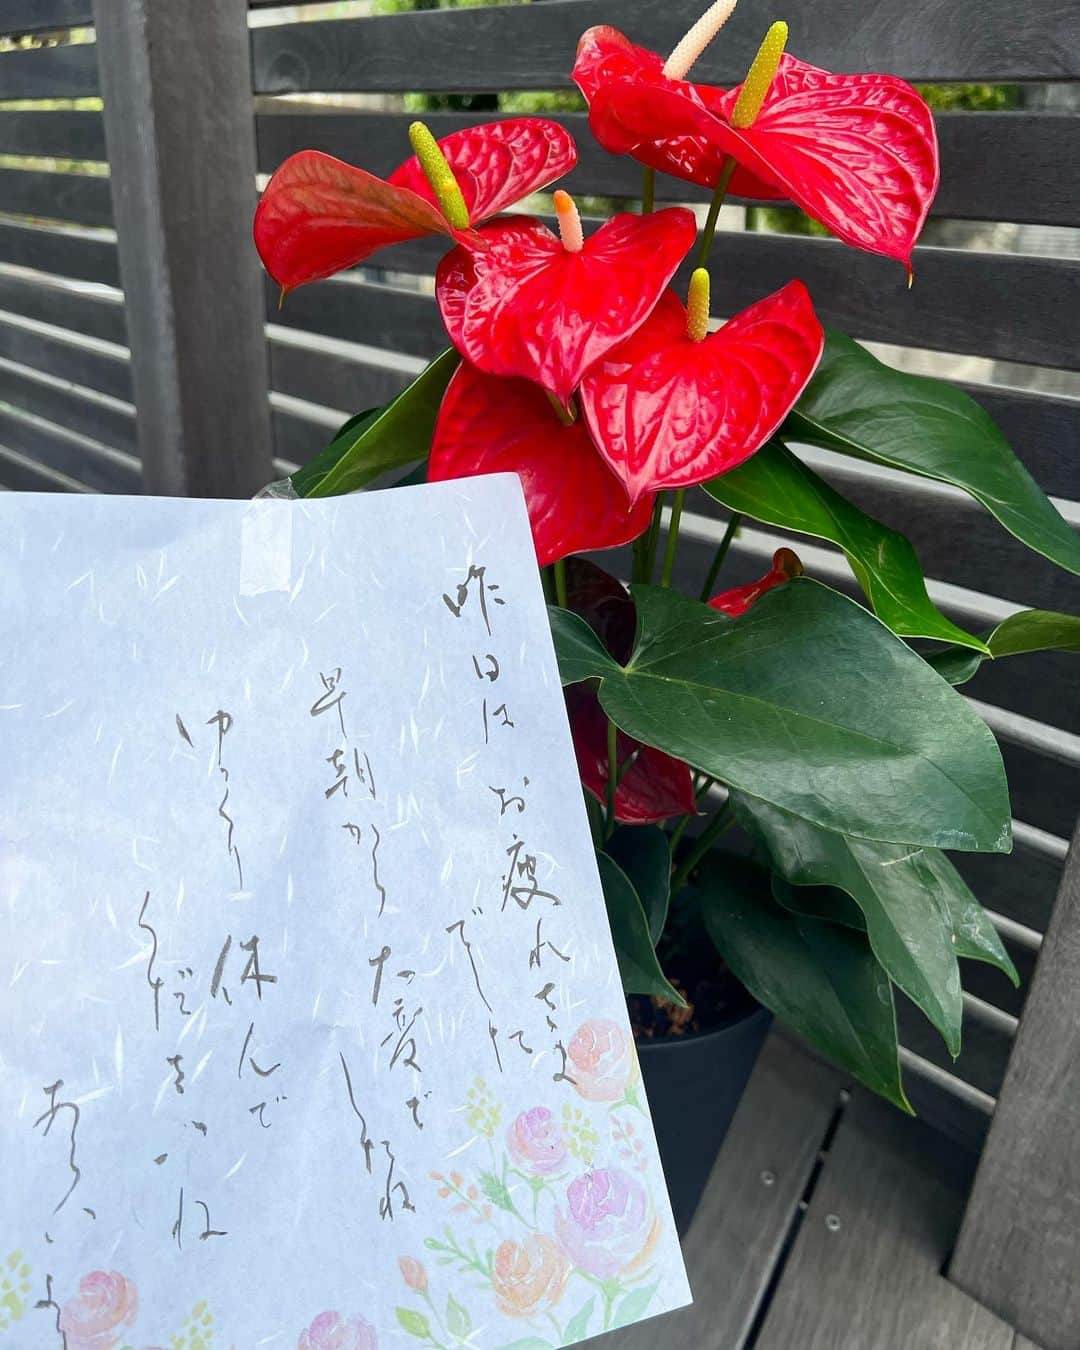 昨日はお疲れさま
でした
早朝から大変で
したね
ゆっくり休んで
くださいね